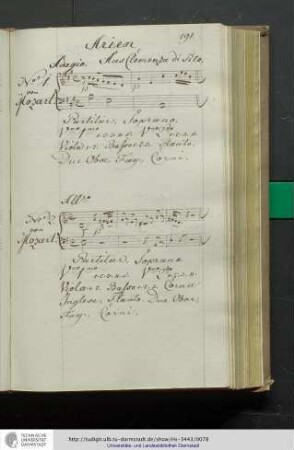 Arien
191.
Adagio. Aus Clemenza di Tito.
No 1.
von
Mozart.
Partitur, Soprano
Viola 2. Basso 2. Flauto.
Due Oboe, Fag. Corni.
All°
No 2.
von
Mozart.
Partitur, Soprano
Viola 2 Basso 2. Corno
Inglese, Flauto. Due Oboe,
Fag. Corni.
TECHNISCHE
UNIVERSITÄT
DARMSTADT
http://tudigit.ulb.tu-darmstadt.de/show/Hs-3443/0078
Universitäts- und Landesbibliothek Darmstadt